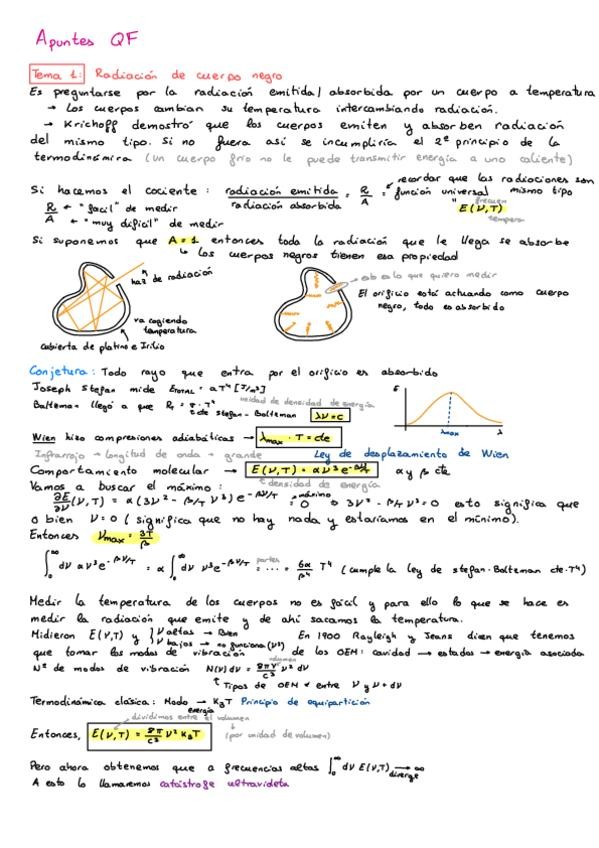 Apuntes QF
Tema 1: Radiación de cuerpo negro
Es preguntarse por la radiación emitida/absorbida por un cuerpo a temperatura
→ Los cuerpos cambian su temperatura intercambiando radiación.
→ Krichoff demostró que los cuerpos emiten y absorben radiación
del mismo tipo. Si no fuera así se incumpliría el 2º principio de la
termodinámica (un cuerpo frío no le puede transmitir energía a uno caliente)
recordar que las radiaciones son
Si hacemos el cociente: radiación emitida / radiación absorbida = R/A = función universal mismo tipo
R ← "fácil" de medir
A ← "muy difícil" de medir
frecuen
E(ν,T)
tempera
Si suponemos que A=1 entonces toda la radiación que le llega se absorbe
↳ Los cuerpos negros tienen esa propiedad
haz de radiación
va cogiendo
temperatura
cubierta de platino e Iridio
eso es lo que quiero medir
El orificio está actuando como cuerpo
negro, todo es absorbido
Conjetura: Todo rayo que entra por el orificio es absorbido
Joseph Stefan mide E_TOTAL = aT⁴ [J/m³]
unidad de densidad de energía
Boltzman llegó a que R_T = σ·T⁴
cte de stefan-Boltzman
λν=c
Wien hizo compresiones adiabáticas → λmax·T = cte
Infrarrojo → longitud de onda → grande
Ley de desplazamiento de Wien
λmax λ
Comportamiento molecular → E(ν,T) = αν³e^(-βν/T) α y β cte
densidad de energía
Vamos a buscar el máximo:
∂E/∂ν (ν,T) = α(3ν² - β/T ν³) e^(-βν/T) = 0 ⇒ 3ν² - β/T ν³ = 0 esto significa que
máximo
o bien ν=0 (significa que no hay nada y estaríamos en el mínimo).
Entonces νmax = 3T/β
∫₀^∞ dν αν³e^(-βν/T) = α ∫₀^∞ dν ν³e^(-βν/T) = ... = 6α/β⁴ T⁴ (cumple la ley de stefan-Boltzman cte·T⁴)
partes
Medir la temperatura de los cuerpos no es fácil y para ello lo que se hace es
medir la radiación que emite y de ahí sacamos la temperatura.
Midieron E(ν,T) y } ν altas → Bien
ν bajas → no funciona (ν³)
En 1900 Rayleigh y Jeans dicen que tenemos
que tomar los modos de vibración de los OEM: cavidad → estados → energía asociada
volumen
Nº de modos de vibración N(ν)dν = 8πV/c³ ν² dν
↳ Tipos de OEM entre ν y ν+dν
Termodinámica clásica: Modo → K_BT Principio de equipartición
energía
dividimos entre el volumen
Entonces, E(ν,T) = 8π/c³ ν² K_BT (por unidad de volumen)
Pero ahora obtenemos que a frecuencias altas ∫₀^∞ dν E(ν,T) → ∞
diverge
A esto lo llamaremos catástrofe ultravioleta